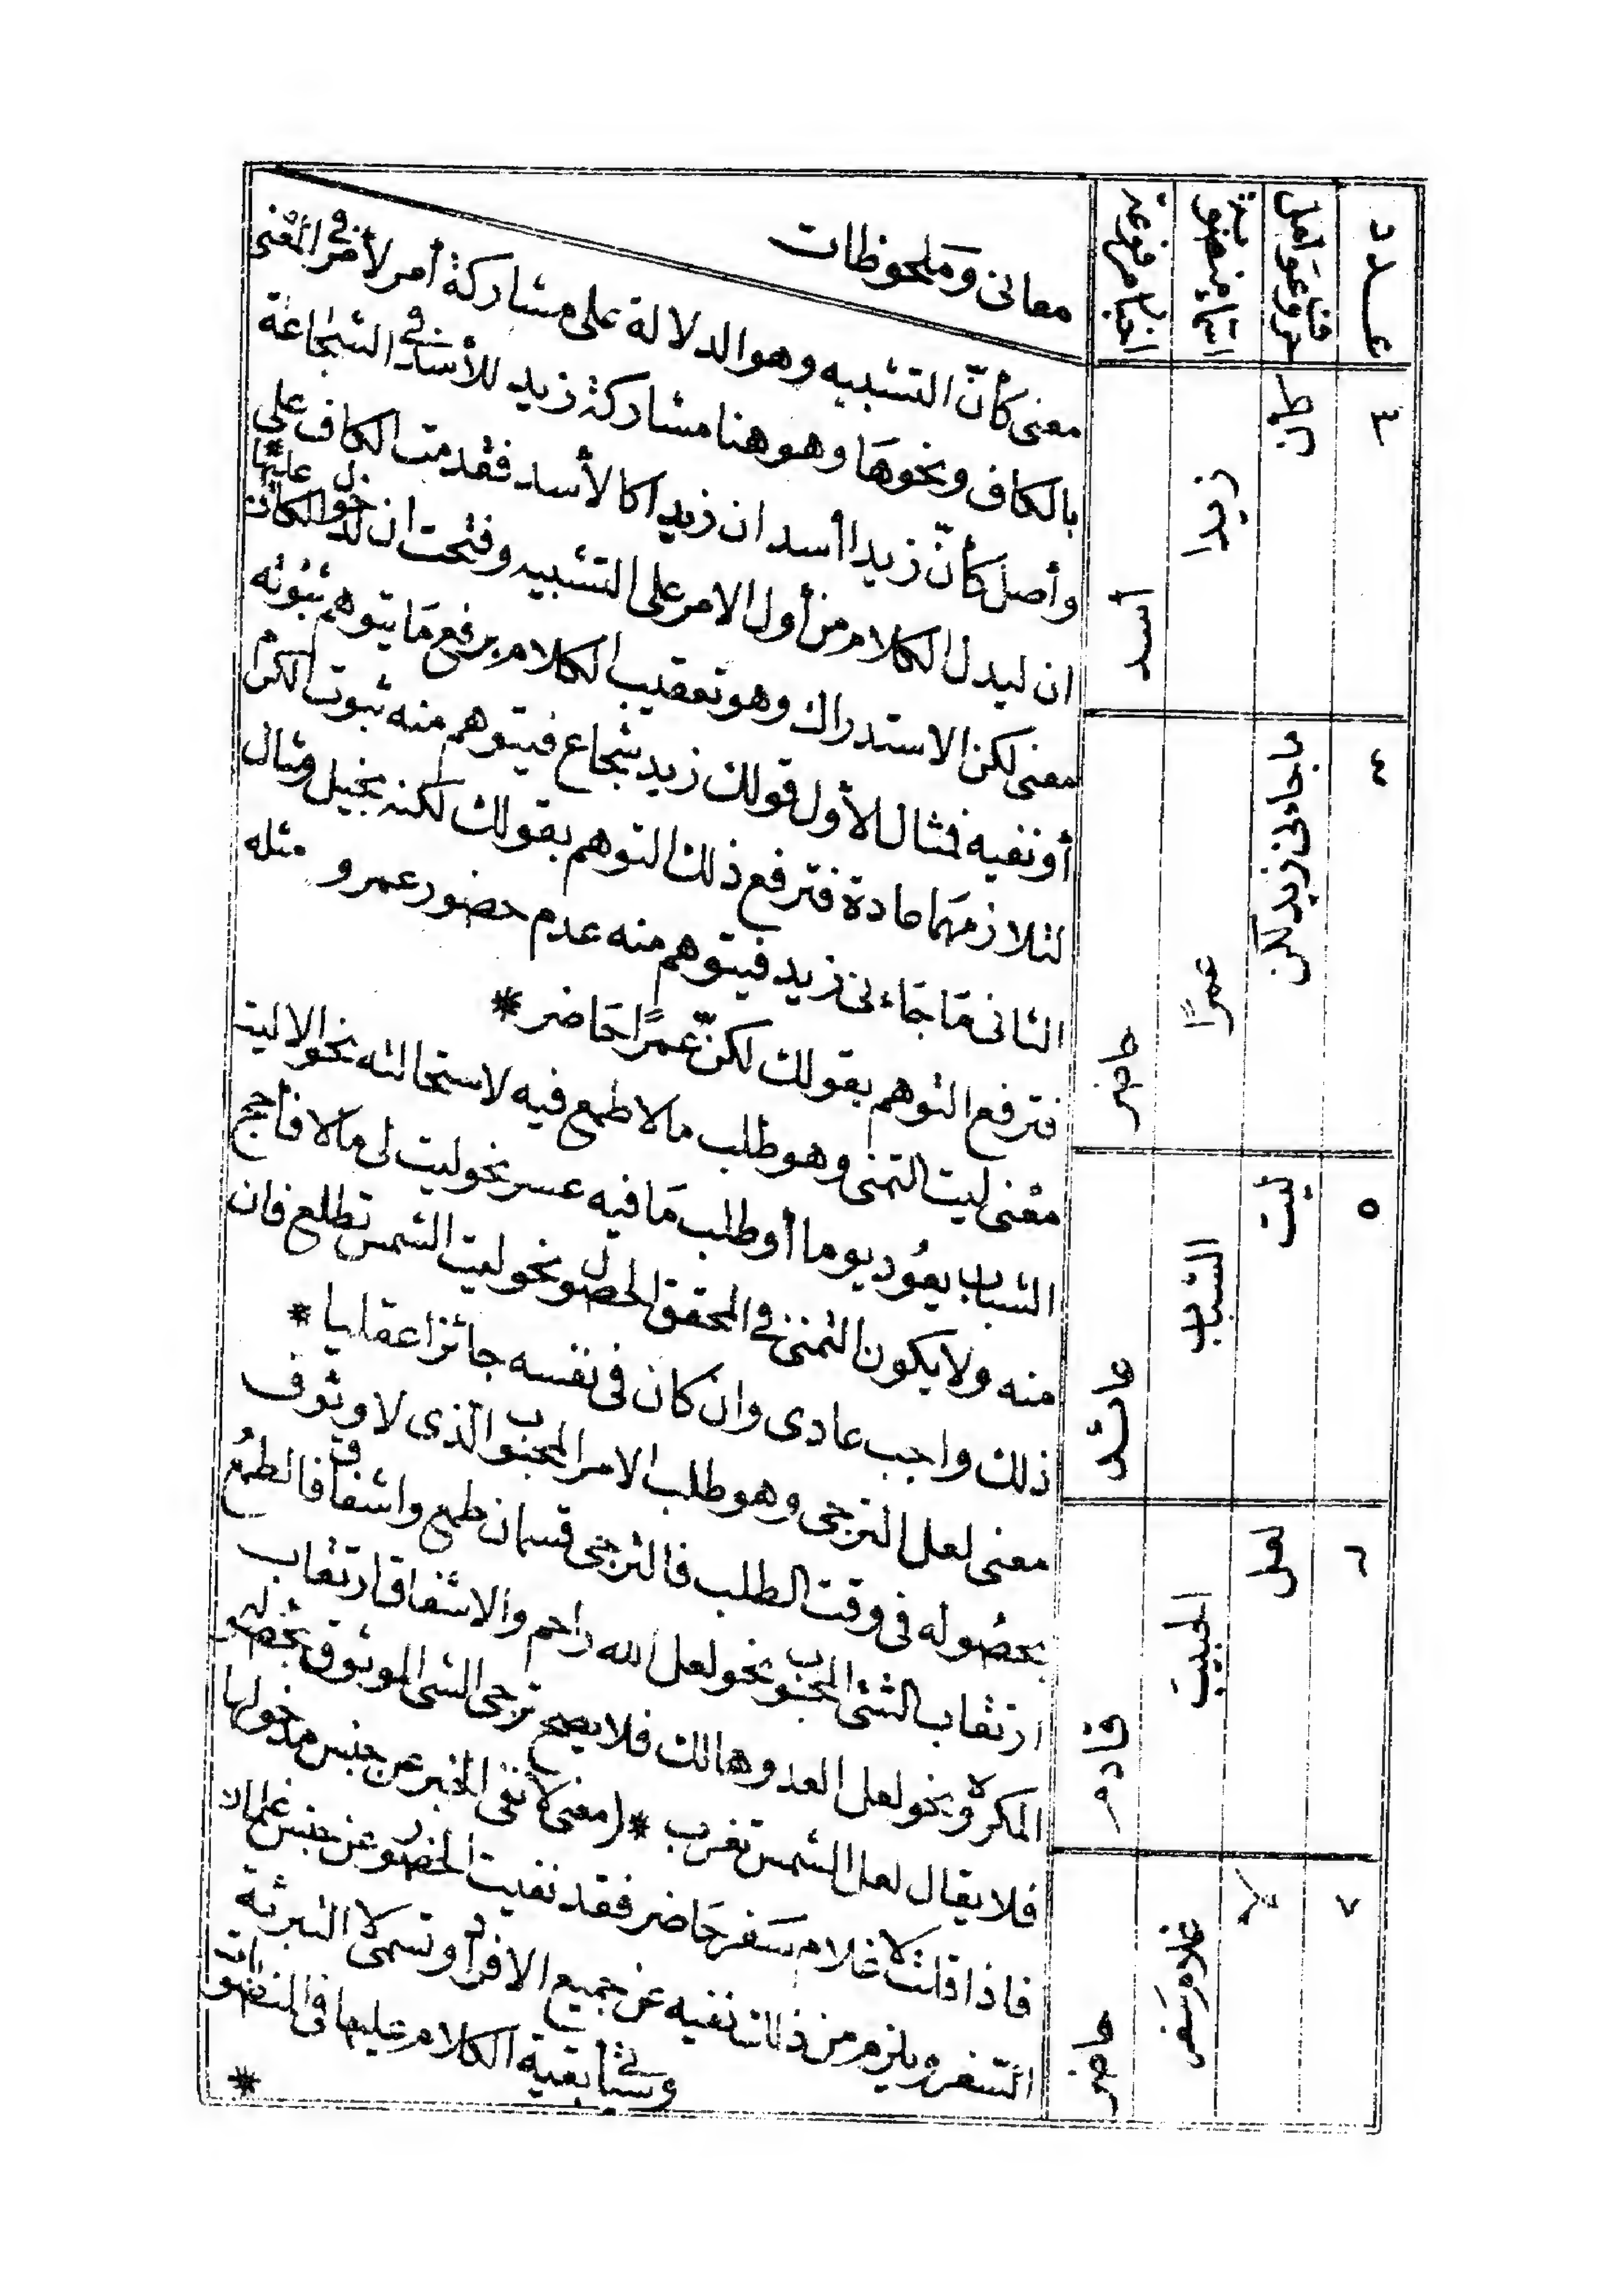 عدد
حروف عوامل
اسماء منصوبة
اخبار مرفوعة
معانى وملحوظات
٣
كأن
زيدا
أسد
معنى كأنّ التشبيه وهو الدلالة على مشاركة أمر لأمر في المعنى
بالكاف ونحوها وهو هنا مشاركة زيد للأسد في الشجاعة
وأصل كأنّ زيدا أسد ان زيدا كالأسد فقدمت الكاف على
ان ليدل الكلام من أول الامر على التشبيه وفتحت ان لدخول الكاف عليها *
٤
ما جاءنى زيد لكن
عمرًا
حاضر
معنى لكن الاستدراك وهو تعقيب الكلام برفع ما يتوهم ثبوته
أو نفيه فمثال الأول قولك زيد شجاع فيتوهم منه ثبوت الكرم
لتلازمهما عادة فترفع ذلك التوهم بقولك لكنه بخيل ومثال
الثانى ما جاءنى زيد فيتوهم منه عدم حضور عمرو مثله
فترفع التوهم بقولك لكنّ عمرًا حاضر *
٥
ليت
الشباب
عائد
معنى ليت التمنى وهو طلب ما لا طمع فيه لاستحالته نحو الا ليت
الشباب يعُود يوما أو طلب ما فيه عسر نحو ليت لى مالا فأحج
منه ولا يكون التمنى في المحقق الحصول نحو ليت الشمس تطلع فان
ذلك واجب عادى وان كان فى نفسه جائزا عقليا *
٦
لعل
الحبيبَ
قادم
معنى لعل الترجى وهو طلب الامر المحبوب الذى لا وثوف
بحصوله فى وقت الطلب فالترجى قسمان طمع واشفاق فالطمعُ
ارتقاب الشئ المحبوب نحو لعل الله راحم والاشفاق ارتقاب
المكروه نحو لعل العدو هالك فلا يصح ترجى الشى الموثوق بحصوله
فلا يقال لعل الشمس تغرب * (معنى لا نفى الخبر عن جنس مدخولها
٧
لا
غلام سَفر
حاضر
فاذا قلت لا غلام سَفر حَاضر فقد نفيت الحضور عن جنس غلمان
السّفر ويلزم من ذلك نفيه عن جميع الافراد وتسمى لا التبرئة
وستأتى بقية الكلام عليها في المنصوبات *